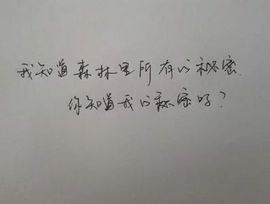 我知道森林里所有的秘密
你知道我的秘密吗？